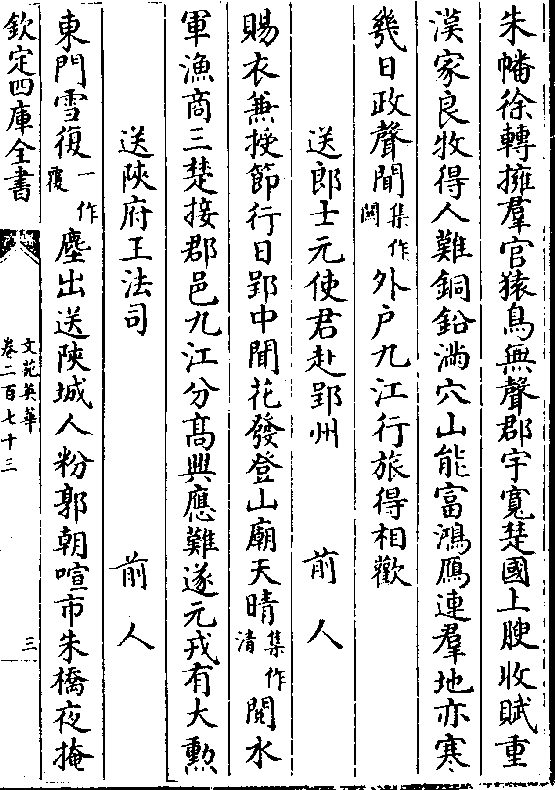 朱幡徐轉擁羣官猿鳥無聲郡宇寛楚國上腴收賦重
漢家良牧得人難銅鉛滿穴山能富鴻雁連羣地亦寒
幾日政聲聞集作外户九江行旅得相歡
送郎士元使君赴郢州 前人
賜衣兼授節行日郢中聞花發登山廟天晴集作清閱水
軍漁商三楚接郡邑九江分髙興應難遂元戎有大勲
送陜府王法司 前人
東門雪復一作覆塵出送陜城人粉郭朝喧市朱橋夜掩
欽定四庫全書
文苑英華
卷二百七十三
三